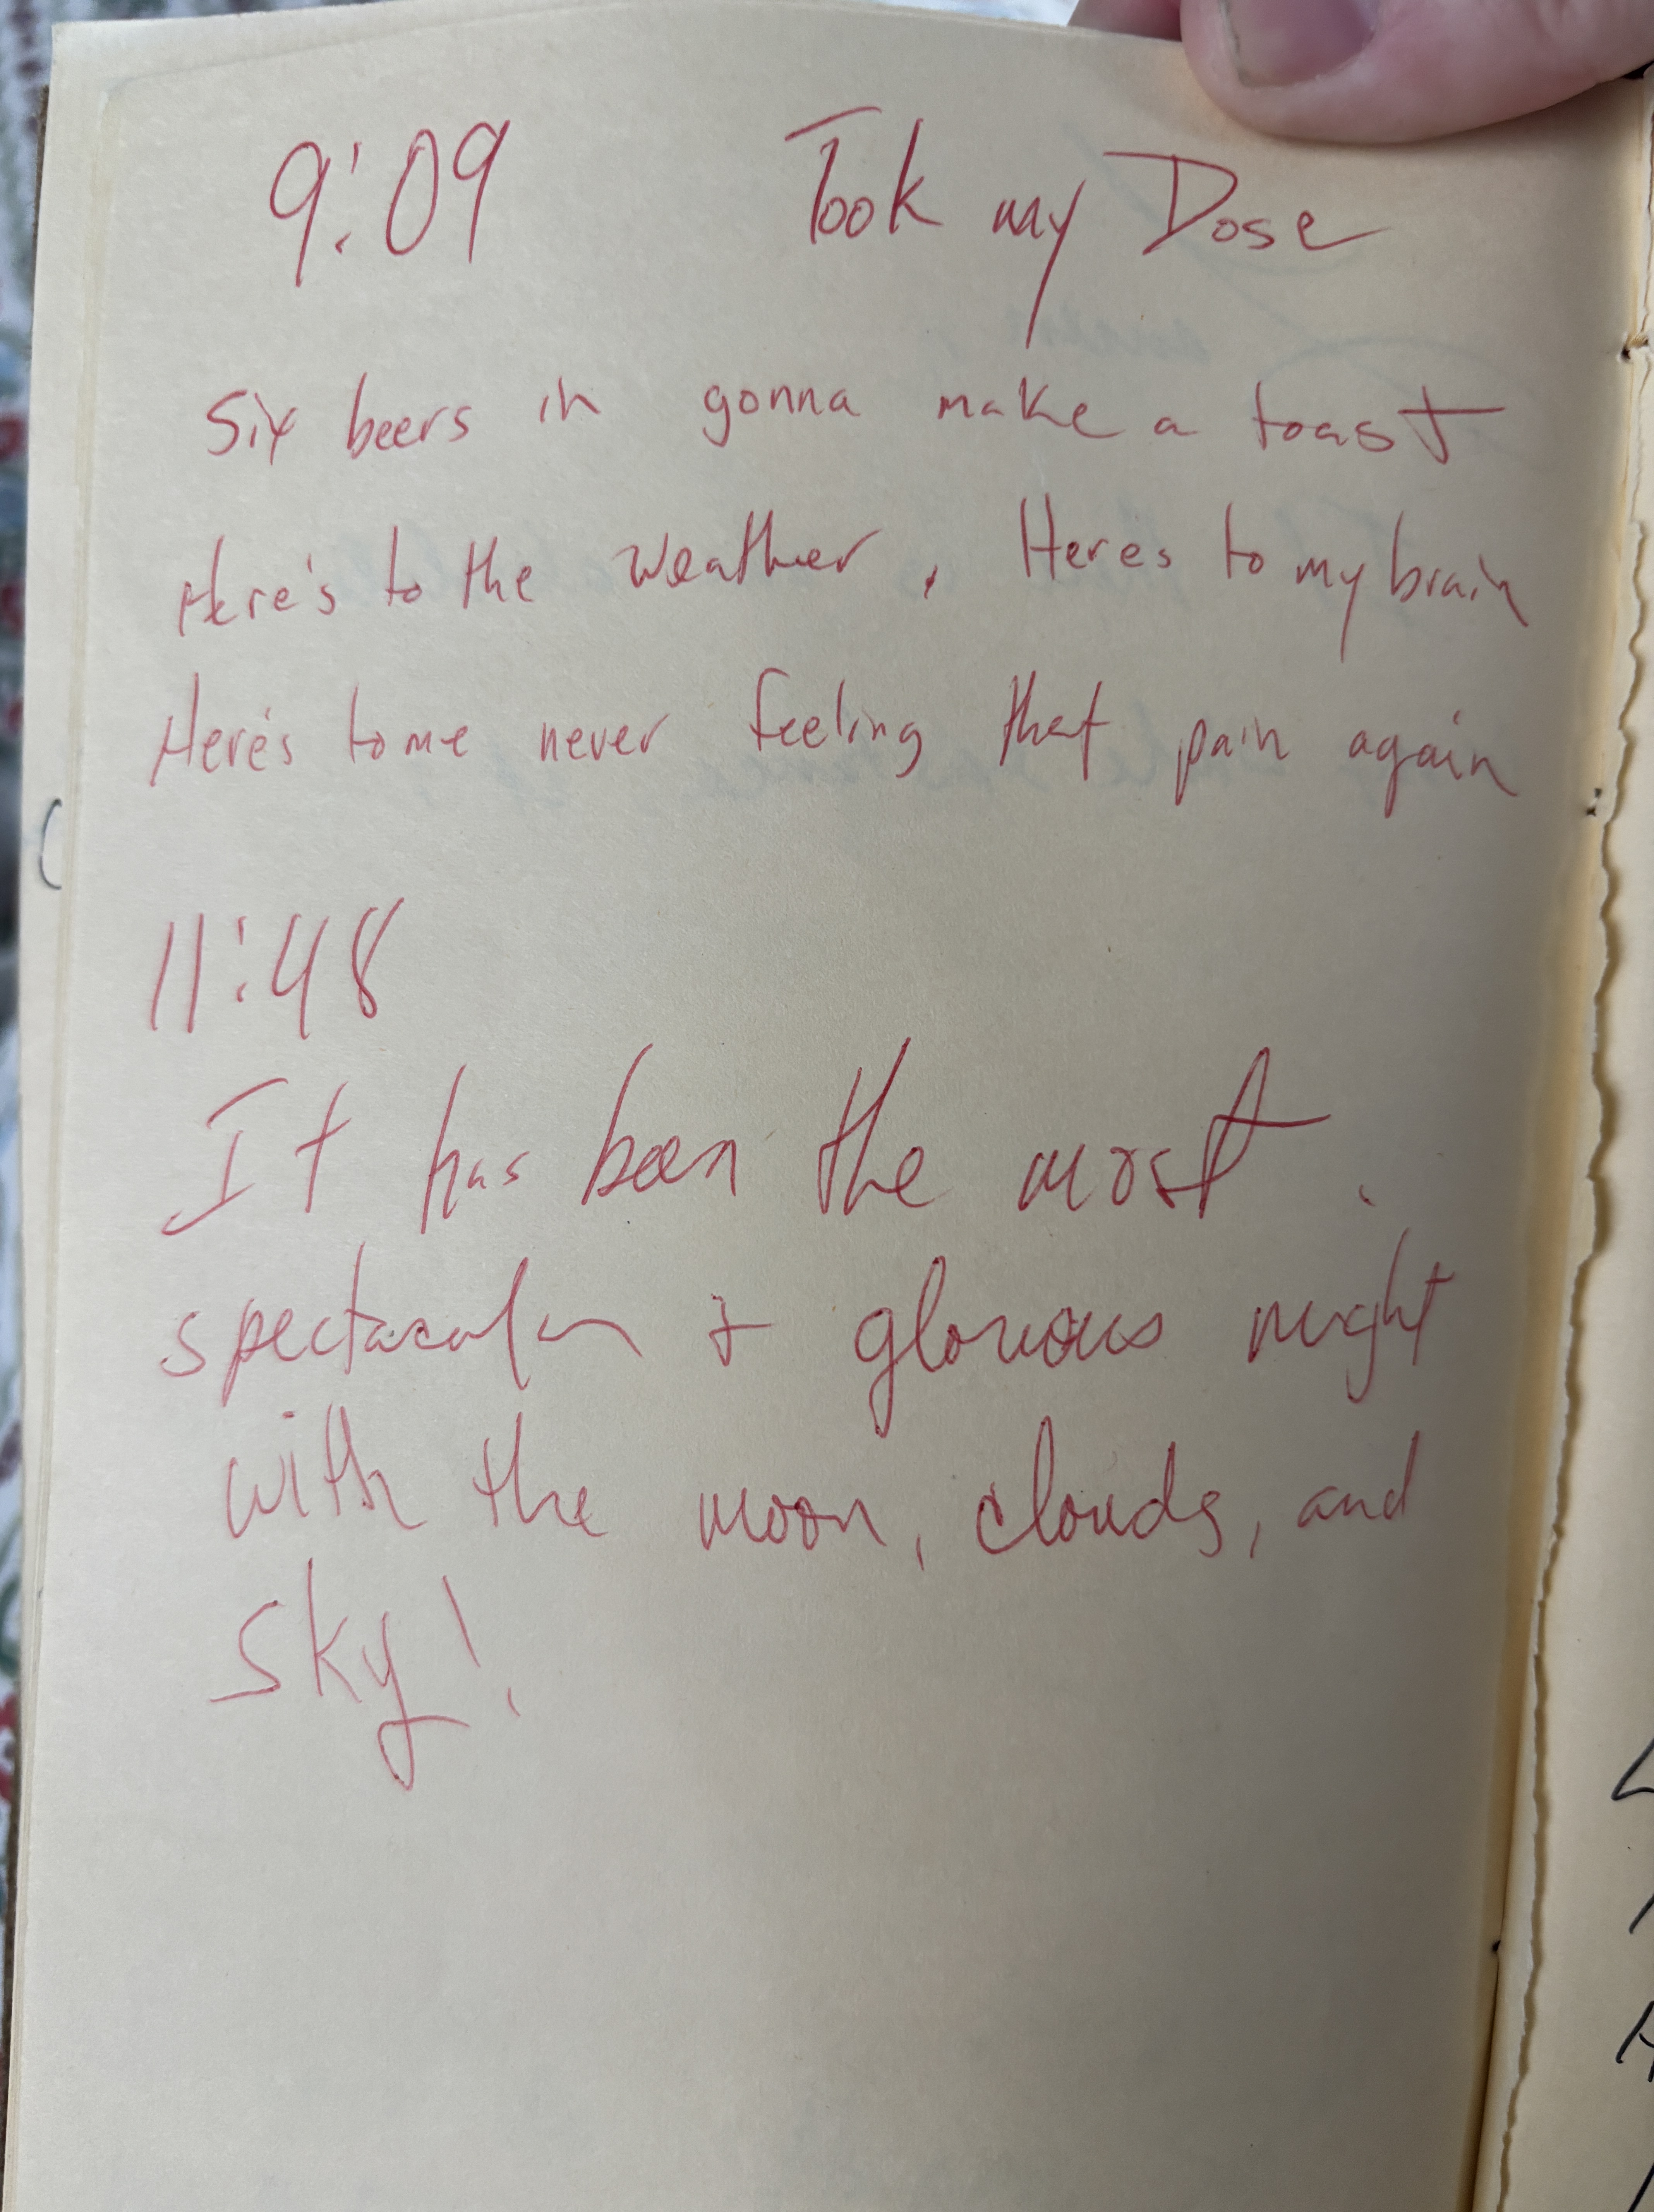 9:09 Took my Dose
Six beers in gonna make a toast
Here's to the weather, Heres to my brain
Here's to me never feeling that pain again
11:48
It has been the most
spectacular + glorious night
with the moon, clouds, and
sky!